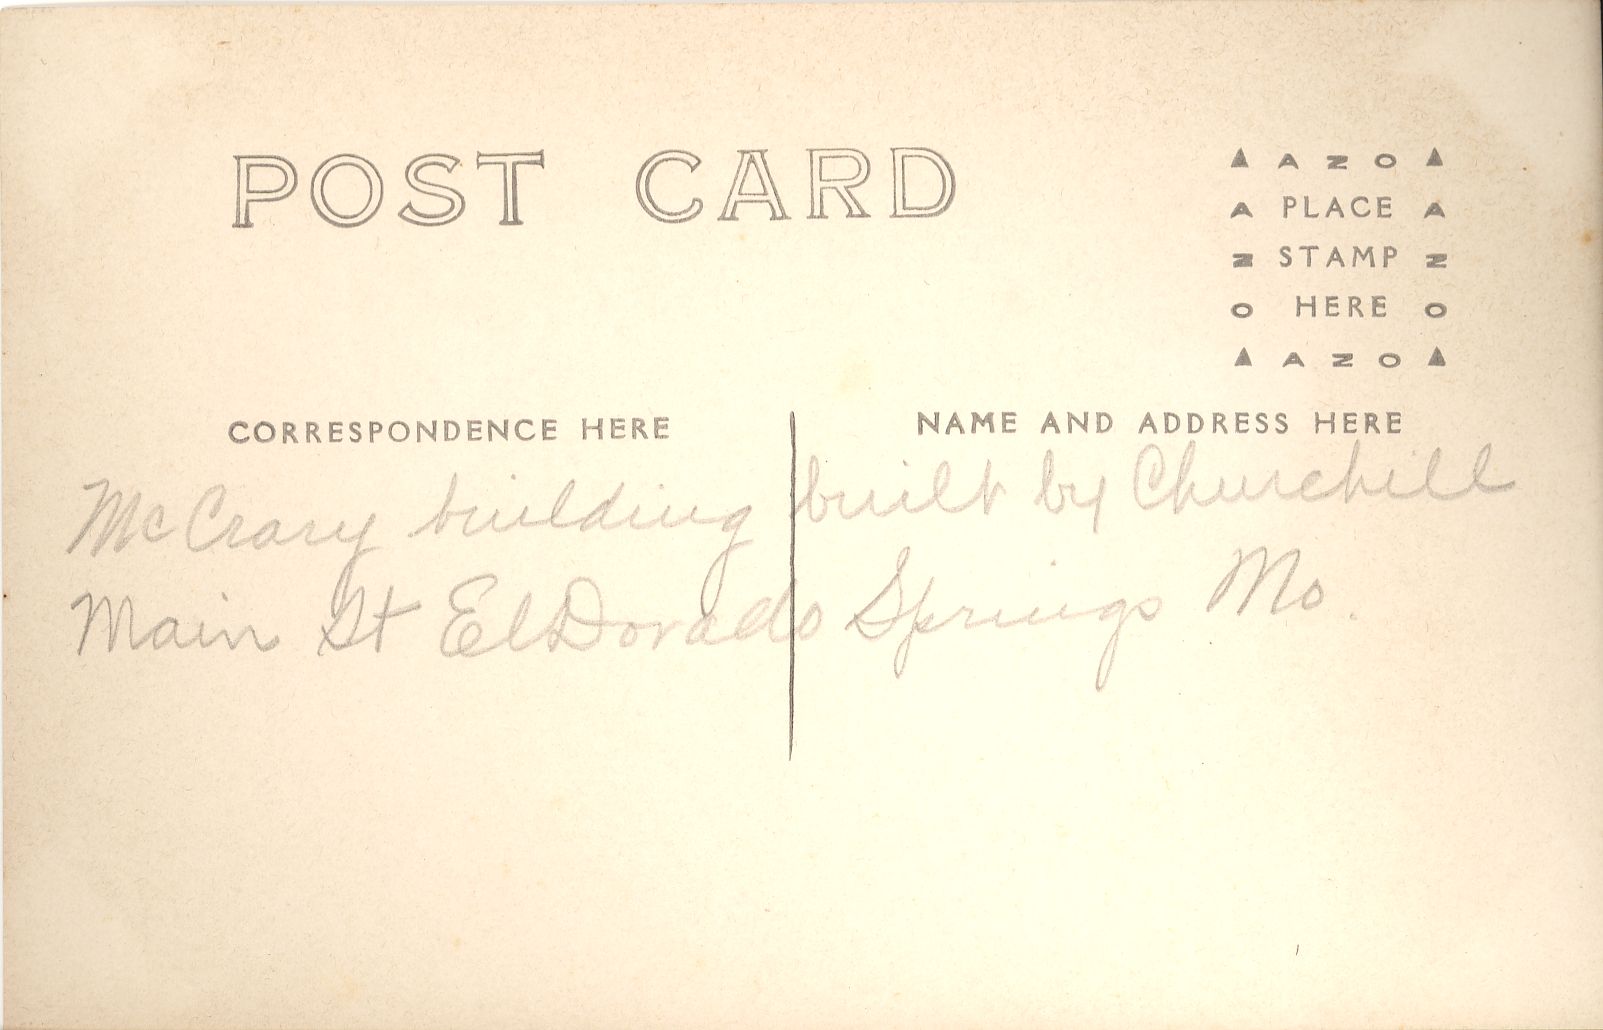 POST CARD
▲ A Z O ▲
A PLACE A
Z STAMP Z
O HERE O
▲ A Z O ▲
CORRESPONDENCE HERE
NAME AND ADDRESS HERE
McCrary building built by Churchill
Main St ElDorado Springs Mo.